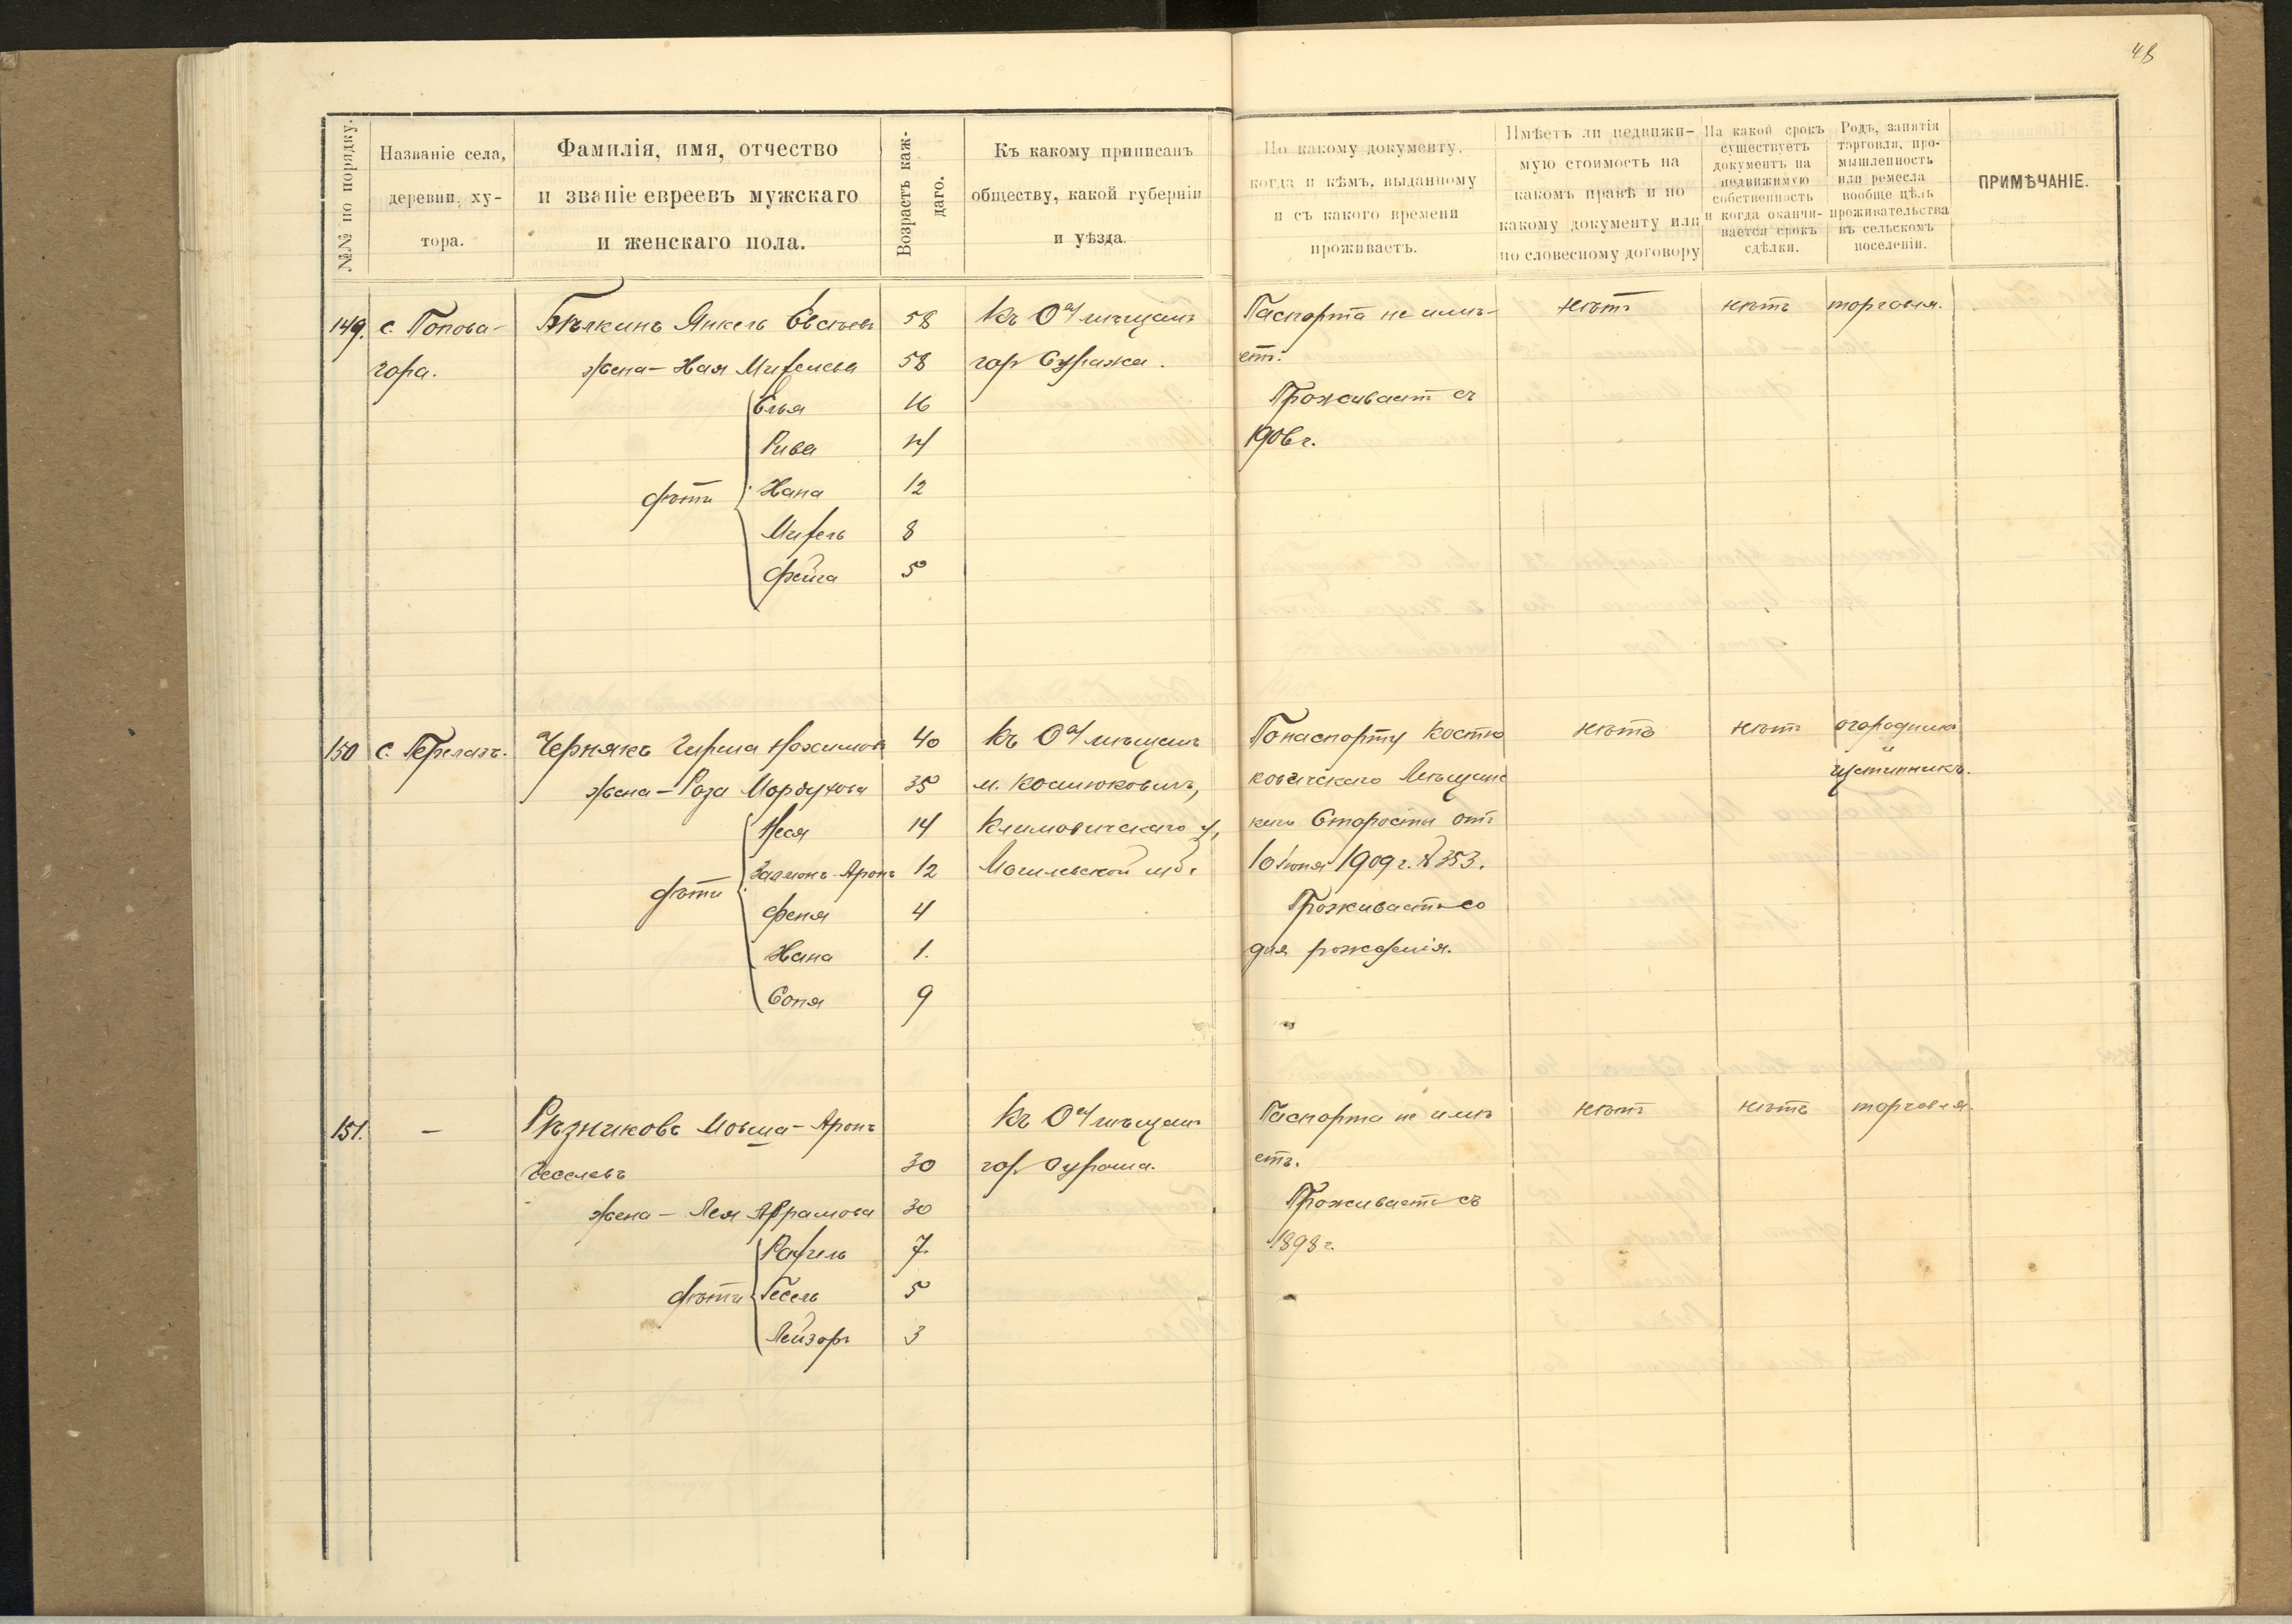 48
№№ по порядку.
Названіе села,
деревни, ху-
тора.
Фамилія, имя, отчество
и званіе евреевъ мужскаго
и женскаго пола.
Возрастъ каж-
даго.
Къ какому приписанъ
обществу, какой губерніи
и уѣзда.
По какому документу,
когда и кѣмъ, выданному
и съ какого времени
проживаетъ.
Имѣетъ ли недвижи-
мую стоимость на
какомъ правѣ и по
какому документу или
по словесному договору
На какой срокъ
существуетъ
документъ на
недвижимую
собственность
и когда оканчи-
вается срокъ
сдѣлки.
Родъ, занятія
торговля, про-
мышленность
или ремесла
вообще цѣль
проживательства
въ сельскомъ
поселеніи.
ПРИМѢЧАНІЕ.
149. с. Попова- Бѣлкинъ Янкель 58 Къ Ову мѣщанъ Паспорта не имѣ- нѣтъ нѣтъ торговля.
гора. жена - Хая 58 гор Суража. етъ.
Елья 16 Проживаетъ съ
Рива 14 1906 г.
дѣти Хана 12
8
Фейга 5
150 с. Перелазъ. Чернякъ Гирша 40 Къ Ову мѣщанъ По паспорту Костю нѣтъ нѣтъ огородникъ
жена - Роза Мордухова 35 м. Костюковичъ, ковичскаго Мѣщанс и
щетинникъ.
Неся 14 Климовичскаго у, каго Старосты отъ
Залмонъ-Аронъ 12 Могилевской губ. 10 Іюня 1909 г. № 353.
дѣти Феня 4 Проживаетъ со
Хана 1. дня рожденія.
Соня 9
151. — Рѣзниковъ Мовша-Аронъ Къ Ову мѣщанъ Паспорта не имѣ нѣтъ нѣтъ торговля.
30 гор Суража. етъ.
жена - Лея Абрамова 30 Проживаетъ съ
7. 1898 г.
дѣти Гесель 5
Лейзоръ 3